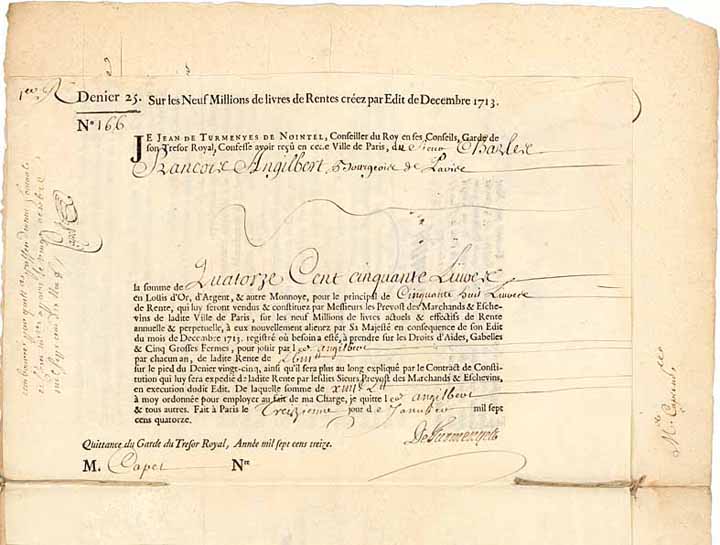 Denier 25. Sur les Neuf Millions de livres de Rentes créez par Edit de Decembre 1713.
N° 166
JE JEAN DE TURMENYES DE NOINTEL, Conseiller du Roy en ses Conseils, Garde de
son Tresor Royal, Confesse avoir reçû en cette Ville de Paris, du Sieur Charles
Francois Angilbert, Bourgeois de Paris
la somme de Quatorze Cent cinquante Livres
en Loüis d'Or, d'Argent, & autre Monnoye, pour le principal de Cinquante huit Livres
de Rente, qui luy seront vendus & constituez par Messieurs les Prevost des Marchands & Esche-
vins de ladite Ville de Paris, sur les neuf Millions de livres actuels & effectifs de Rente
annuelle & perpetuelle, à eux nouvellement alienez par Sa Majesté en consequence de son Edit
du mois de Decembre 1713. registré où besoin a esté, à prendre sur les Droits d'Aides, Gabelles
& Cinq Grosses Fermes, pour joüir par led. Sr angilbert
par chacun an, de ladite Rente de
sur le pied du Denier vingt-cinq, ainsi qu'il sera plus au long expliqué par le Contract de Consti-
tution qui luy sera expedié de ladite Rente par lesdits Sieurs Prevost des Marchands & Eschevins,
en execution dudit Edit. De laquelle somme de
à moy ordonnée pour employer au fait de ma Charge, je quitte led. Sr angilbert
& tous autres. Fait à Paris le Treizieme jour de Janvier mil sept
cens quatorze.
De Turmenyes
Quittance du Garde du Tresor Royal, Année mil sept cens treize.
M. Capet Nre